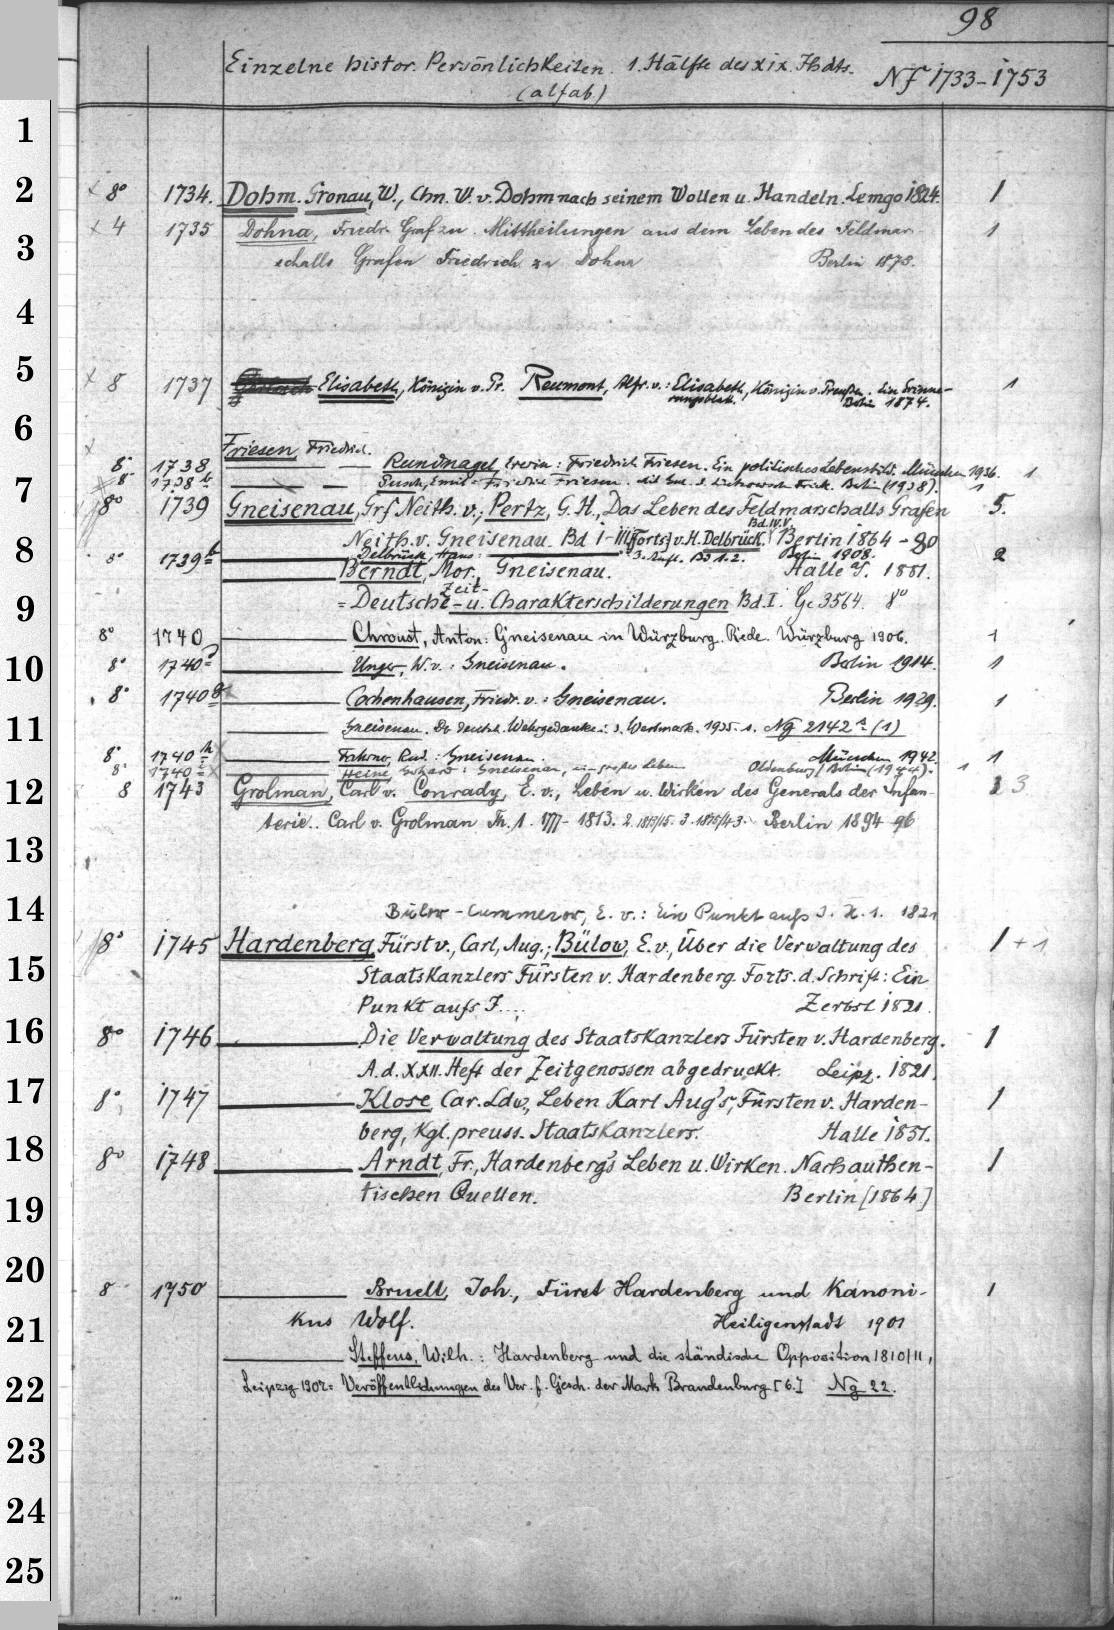 98
Einzelne histor. Persönlichkeiten. 1. Hälfte des XIX. Jhdts. NF 1733-1753
(alfab.)
1
2 8° 1734. Dohm. Gronau, W., Chn. W. v. Dohm nach seinem Wollen u. Handeln. Lemgo 1824. 1
3 4 1735 Dohna, Friedr. Graf zu. Mittheilungen aus dem Leben des Feldmar-
schalls Grafen Friedrich zu Dohna Berlin 1873. 1
4
5 8 1737 Elisabeth, Königin v. Pr. Reumont, Alfr. v.: Elisabeth, Königin v. Preußen. Ein Erinne-
rungsblatt. Berlin 1874. 1
6
Friesen, Friedrich.
8° 1738 Rundnagel, Erwin: Friedrich Friesen. Ein politisches Lebensbild. München 1936. 1
7 8° 1738 b Emil: Friedrich Friesen. Berlin (1938). 1
8° 1739 Gneisenau, Grf Neith. v.; Pertz, G. H., Das Leben des Feldmarschalls Grafen 5.
Bd. IV. V.
8 Neith. v. Gneisenau. Bd I-III (Forts.) v. H. Delbrück. Berlin 1864-80
Delbrück, Hans: 3. Aufl. Bd 1. 2. Berlin 1908.
8° 1739 b Berndt, Mor., Gneisenau. Halle a/S. 1881. 2
Zeit-
9 = Deutsche - u. Charakterschilderungen Bd. I. Gc 3564. 8°
8° 1740 Chroust, Anton: Gneisenau in Würzburg. Rede. Würzburg 1906. 1
10 8° 1740 Unger, W. v.: Gneisenau. Berlin 1914. 1
8° 1740 g Cochenhausen, Friedr. v.: Gneisenau. Berlin 1929. 1
11 Gneisenau. Wehrgedanke. 1935. 1. Ng 2142 a (1)
8° 1740 h Fahrner, Rud.: Gneisenau. München 1942. 1
8° 1740 i Heine, Gerhard: Gneisenau, ein großes Leben Oldenburg/Berlin (1944). 1
12 8 1743 Grolman, Carl v. Conrady, E. v., Leben u. Wirken des Generals der Infan- 3
terie.. Carl v. Grolman Th. 1. 1777-1813. 2. 1813/15. 3. 1815/43. Berlin 1894-96
13
14 Bülow-Cummerow, E. v.: Ein Punkt aufs J. H. 1. 1821
8° 1745 Hardenberg, Fürst v., Carl, Aug.; Bülow, E. v., Über die Verwaltung des 1 + 1
15 Staatskanzlers Fürsten v. Hardenberg. Forts. d. Schrift: Ein
Punkt aufs J.... Zerbst 1821.
16 8° 1746 Die Verwaltung des Staatskanzlers Fürsten v. Hardenberg. 1
A. d. XXII. Heft der Zeitgenossen abgedruckt. Leipz. 1821.
17 8° 1747 Klose, Car. Ldw., Leben Karl Aug's, Fürsten v. Harden- 1
berg, Kgl. preuss. Staatskanzlers. Halle 1851.
18 8° 1748 Arndt, Fr., Hardenberg's Leben u. Wirken. Nach authen- 1
19 tischen Quellen. Berlin [1864]
20 8 1750 Bruell, Joh., Fürst Hardenberg und Kanoni- 1
21 kus Wolf. Heiligenstadt 1901
Steffens, Wilh.: Hardenberg und die ständische Opposition 1810/11,
22 Leipzig 1907 = Veröffentlichungen des Ver. f. Gesch. der Mark Brandenburg [6.] Ng 22.
23
24
25